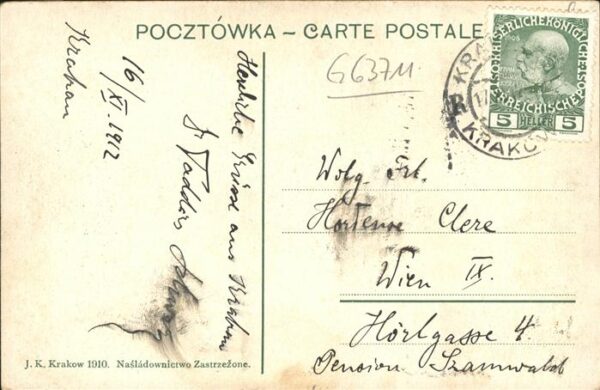 POCZTÓWKA – CARTE POSTALE
G637M
Krakau
16/XI. 1912
Herzliche Grüsse aus Krakau
Dr Taddäus
KRAKÓW
17
KAISERLICHE KÖNIGLICHE
ÖSTERREICHISCHE POST
5 HELLER 5
Wolg. Frl.
Hortense Clere
Wien IX.
Hörlgasse 4.
Pension Szamwald
J. K, Krakow 1910. Naśladownictwo Zastrzeżone.